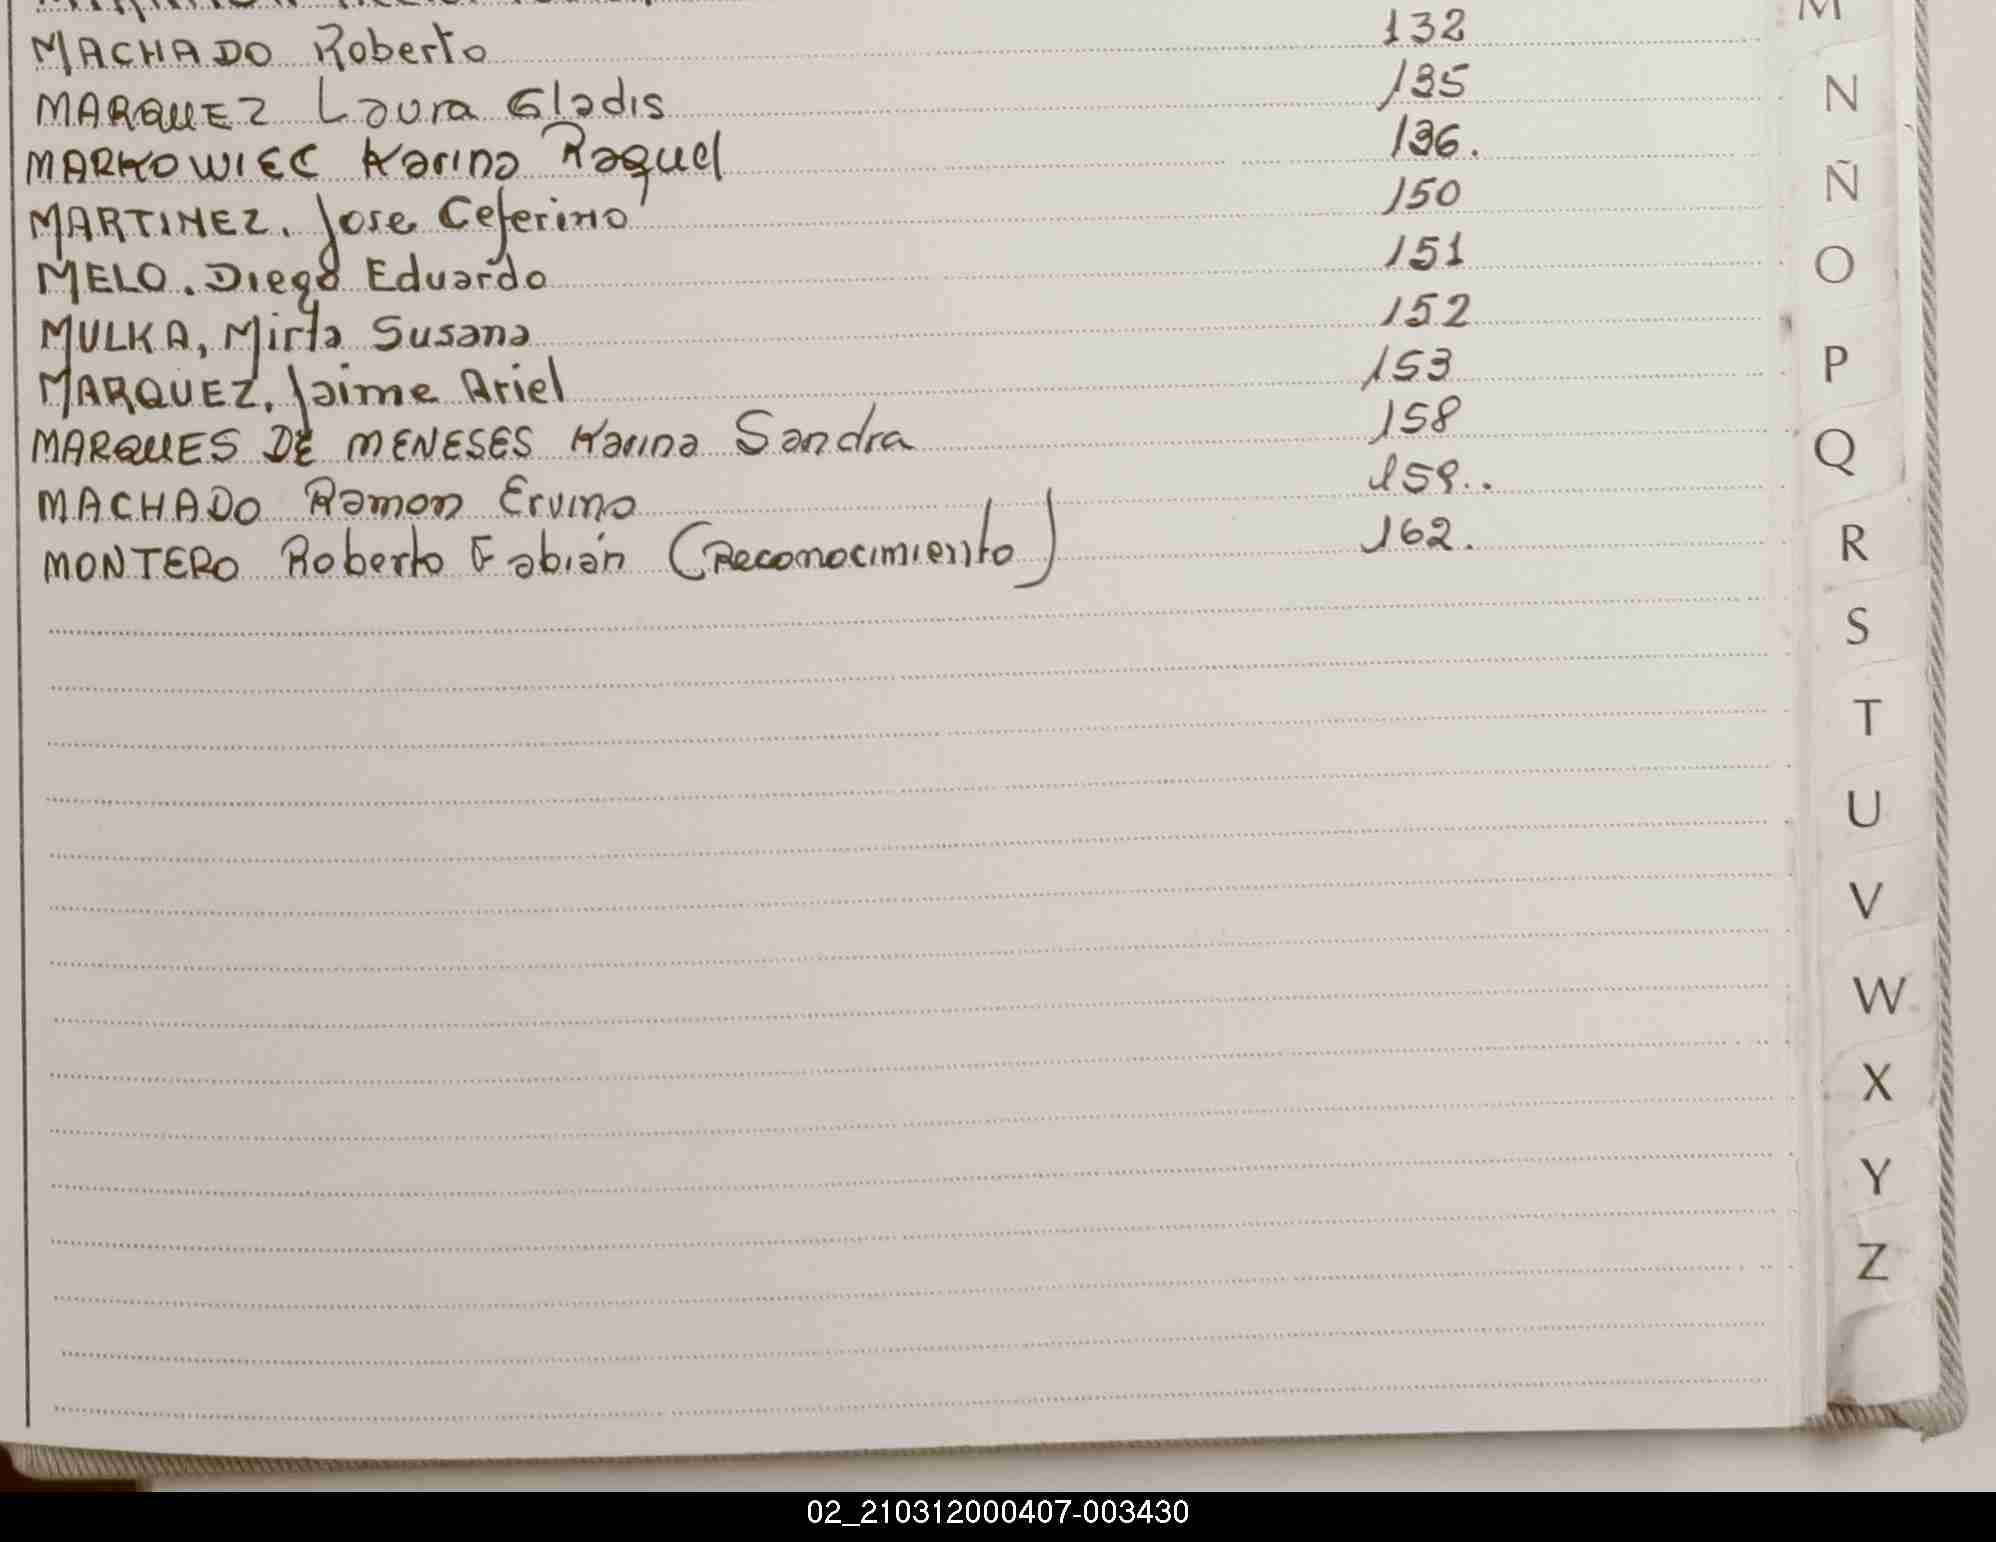 MACHADO Roberto 132
MARQUEZ Laura Gladis 135
MARKOWIEC Karina Raquel 136.
MARTINEZ. Jose Ceferino 150
MELO. Diego Eduardo 151
MULKA, Mirta Susana 152
MARQUEZ. Jaime Ariel 153
MARQUES DE MENESES Karina Sandra 158
MACHADO Ramon Ervino 159..
MONTERO Roberto Fabián (Reconocimiento) 162.
M
N
Ñ
O
P
Q
R
S
T
U
V
W
X
Y
Z
02_210312000407-003430